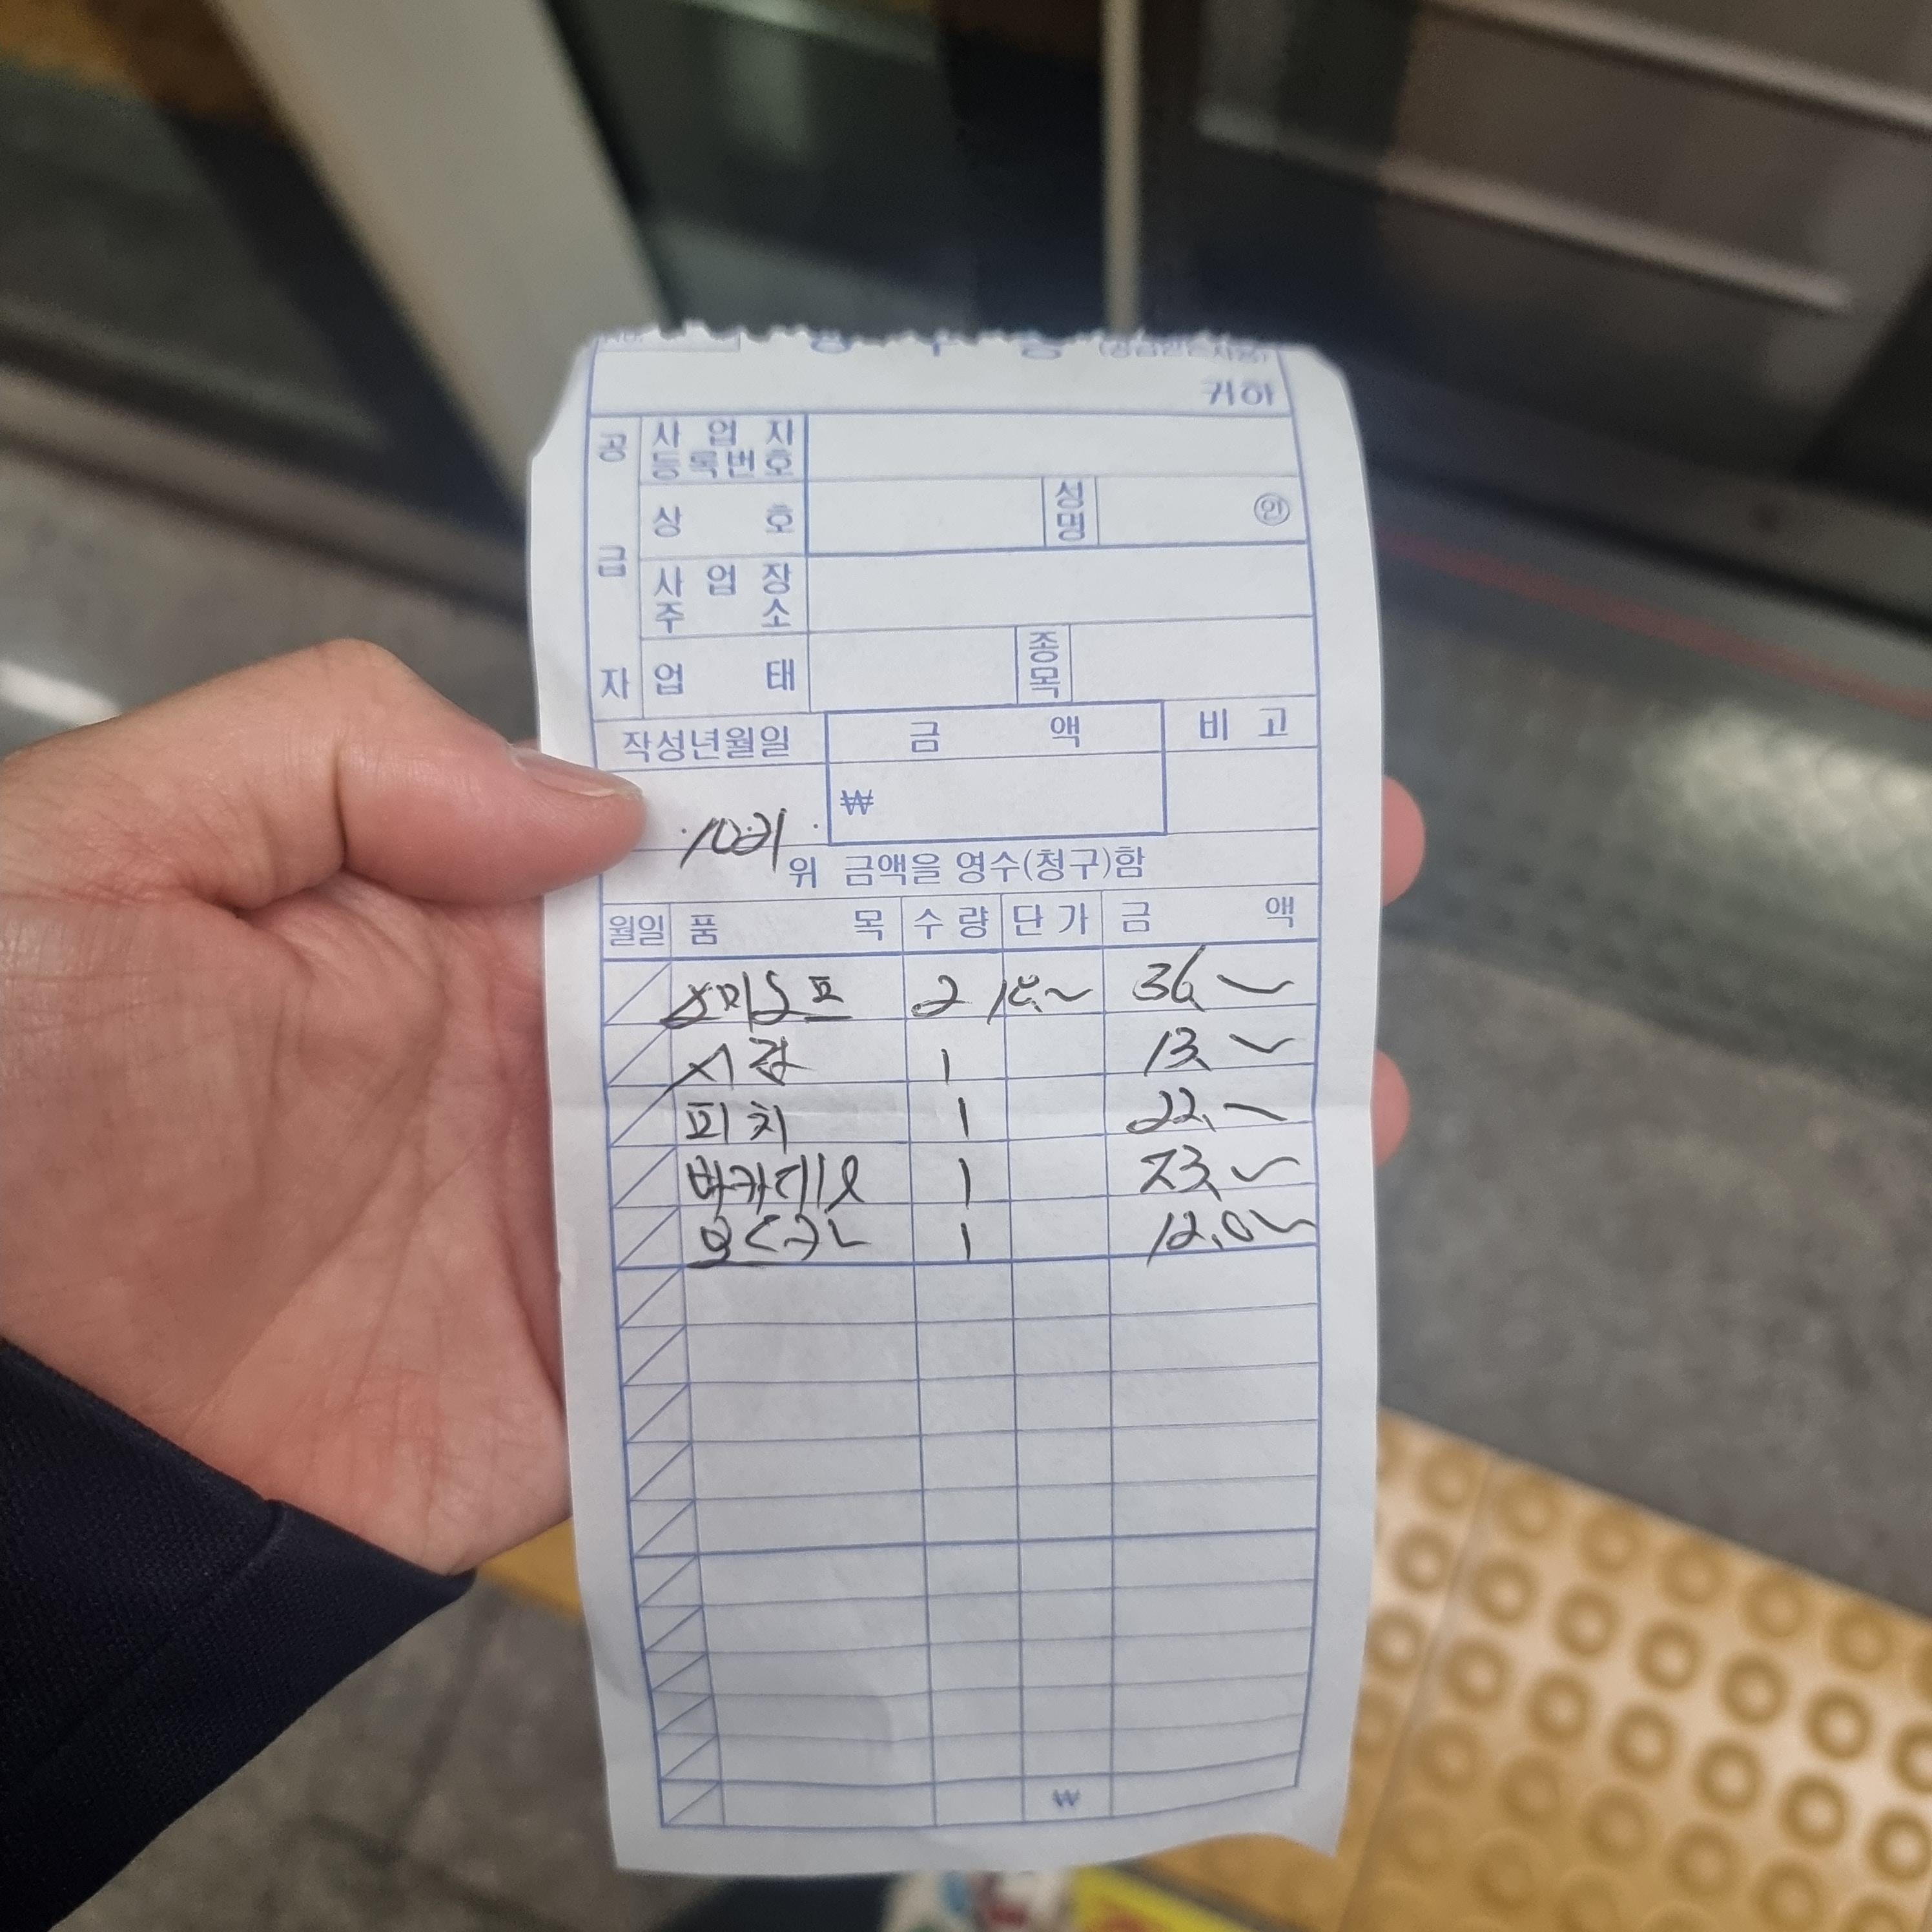 귀하
공급자
사업자등록번호
상호 성명 ㊞
사업장주소
업태 종목
작성년월일 금액 비고
₩
위 금액을 영수(청구)함
월일 품목 수량 단가 금액
2 36.~
시럽 1 13.~
피치 1 22.~
바카디 1 23.~
1 12.0~
₩